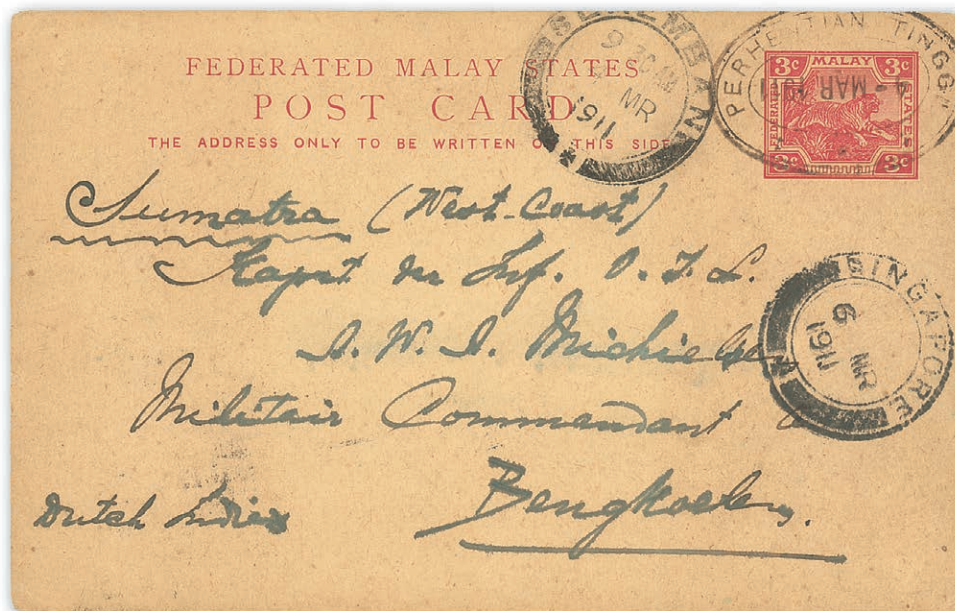 FEDERATED MALAY STATES
POST CARD
THE ADDRESS ONLY TO BE WRITTEN ON THIS SIDE
SEREMBAN
9 30 AM
MR
1911
PERHENTIAN TINGGI
4 - MAR 1911
3c MALAY 3c
FEDERATED STATES
3c 3c
Sumatra (West-Coast)
Kapt der Inf. O. I. L.
A. W. A. Michielsen
Militair Commandant
Bengkoelen.
Dutch Indies
SINGAPORE
6 MR
1911